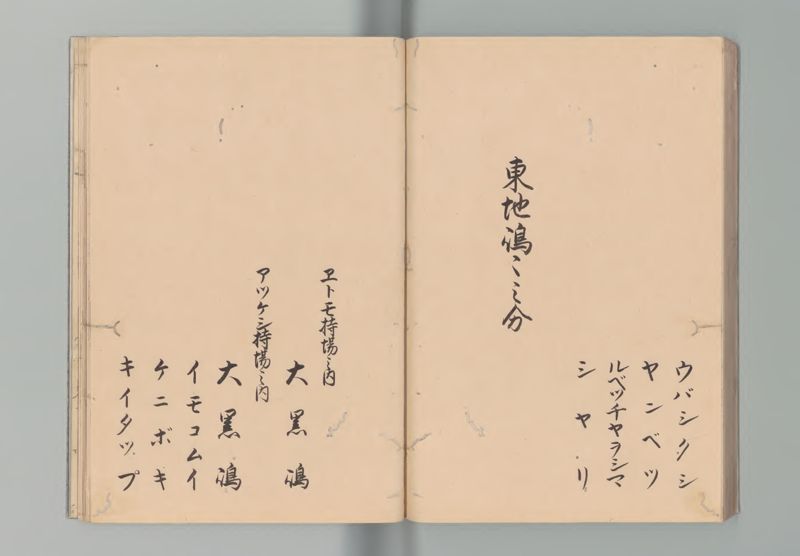 ウバシタシ
ヤンベツ
ルベツチヤラシマ
シヤリ
東地嶋〻之分
ヱトモ持場之内
大黒嶋
アツケシ持場之内
大黒嶋
イモコムイ
ケニボキ
キイタツプ